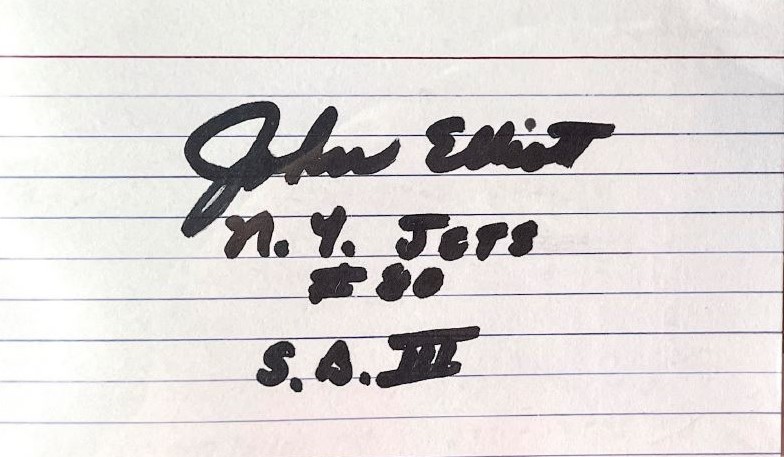 John Elliott
N.Y. JETS
#80
S.B. III